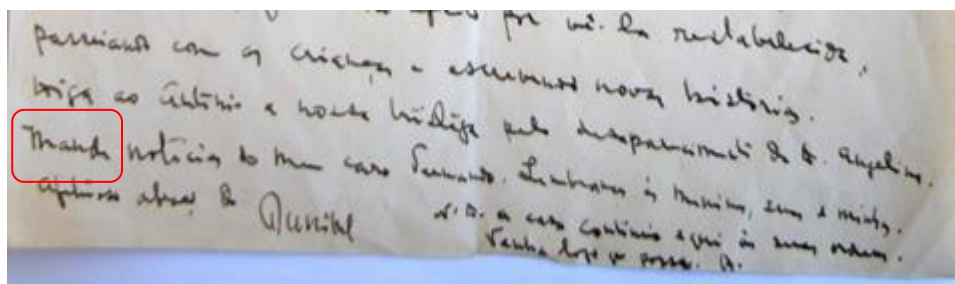 por vê-la restabelecida,
passeando com as crianças e escrevendo novas histórias.
Diga ao Antônio a nossa tristeza pelo desaparecimento de D. Angelina.
Mande notícias do meu caro Fernando. Lembranças às meninas, suas e minhas.
Afetuoso abraço do Annibal
N.B. a casa continua aqui às suas ordens.
Venha logo que possa. A.